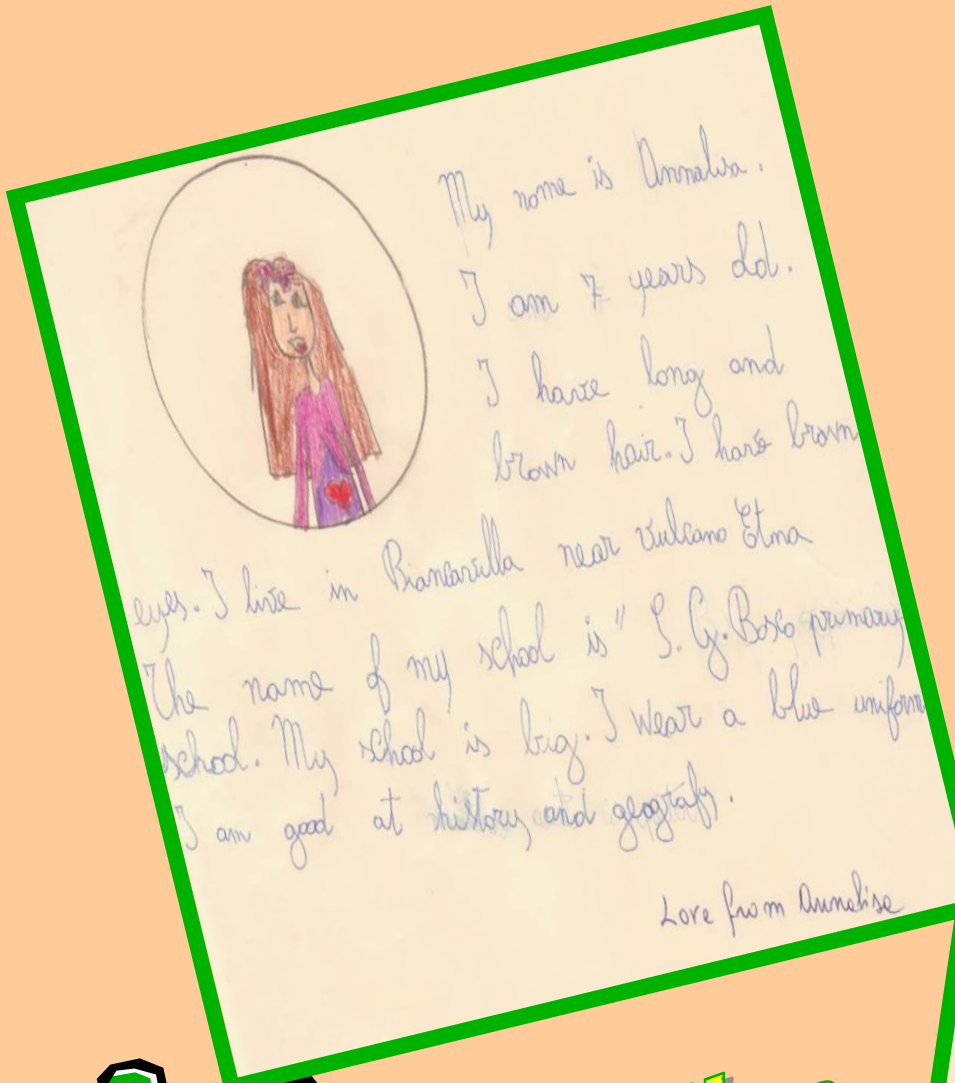 My name is Annalisa.
I am 7 years old.
I have long and
brown hair. I have brown
eyes. I live in Biancavilla near vulcano Etna
The name of my school is " S. G. Bosco primary
school. My school is big. I wear a blue uniform
I am good at history and geografy.
Love from Annalisa